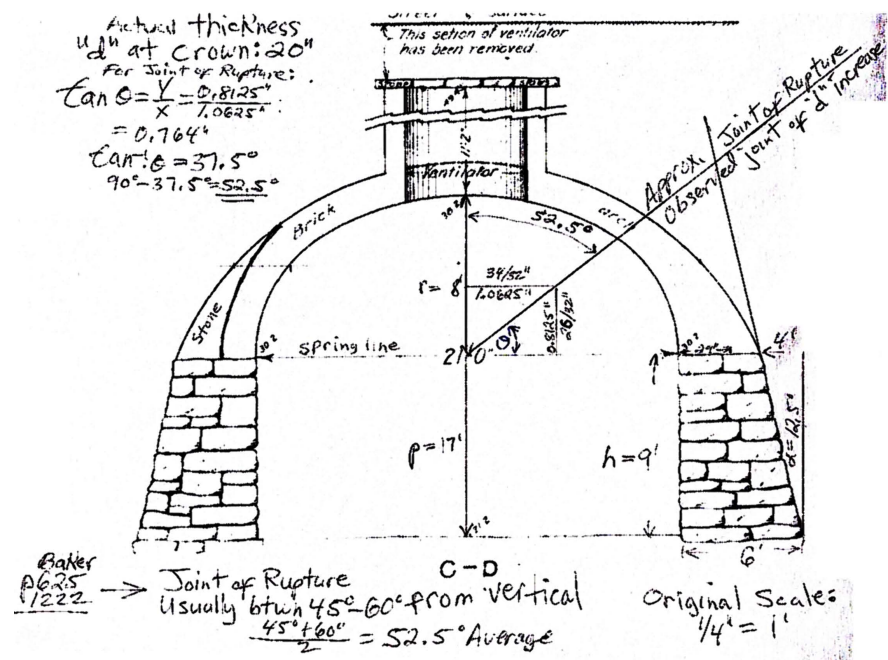 Actual thickness
"d" at crown: 20"
For Joint of Rupture:
tan θ = Y/X = 0.8125"/1.0625" :
= 0.764"
tan⁻¹ θ = 37.5°
90° - 37.5° = 52.5°
Street & Surface
This setion of ventilator
has been removed.
Stone
Stone
11'2"
Ventilator
Approx. Joint of Rupture
Observed joint of "d" increase
Brick
arch
52.5°
r = 8'
34/32"
1.0625"
0.8125"
26/32"
θ
Stone
spring line
21' 0"
24"
4'
p = 17'
h = 9'
α = 12.5°
6'
C-D
Baker
p625
1222
Joint of Rupture
Usually btwn 45°-60° from vertical
45° + 60°/2 = 52.5° Average
Original Scale:
1/4" = 1'